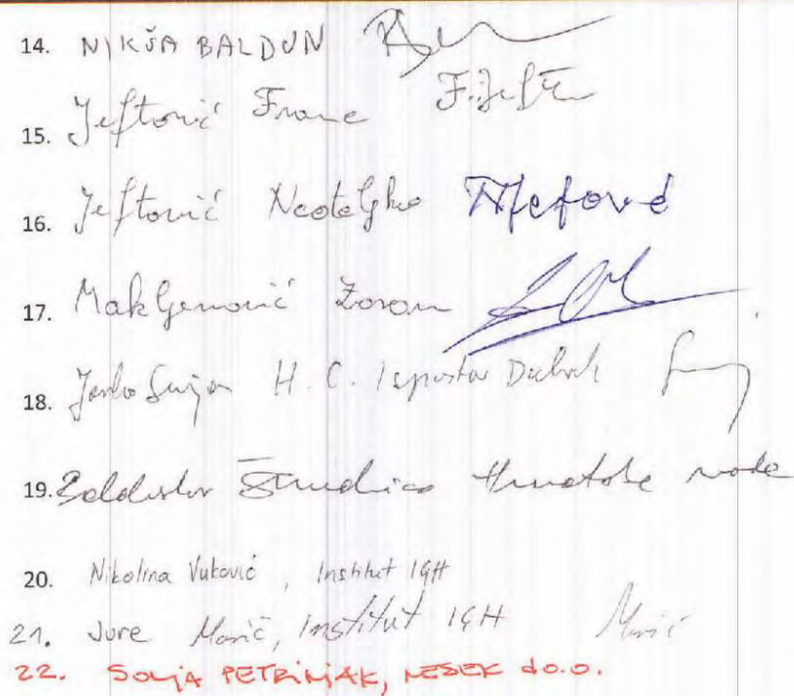 14. NIKŠA BALDUN
15. Jeftović Frane F. Jeft
16. Jeftović Nedeljko N Jeftović
17. Makljenović Zoran
18. H. C. Ispostava
19. Hrvatske vode
20. Nikolina Vuković, Institut IGH
21. Jure Marić, Institut IGH Marić
22. SONJA PETRINJAK, NESEK d.o.o.